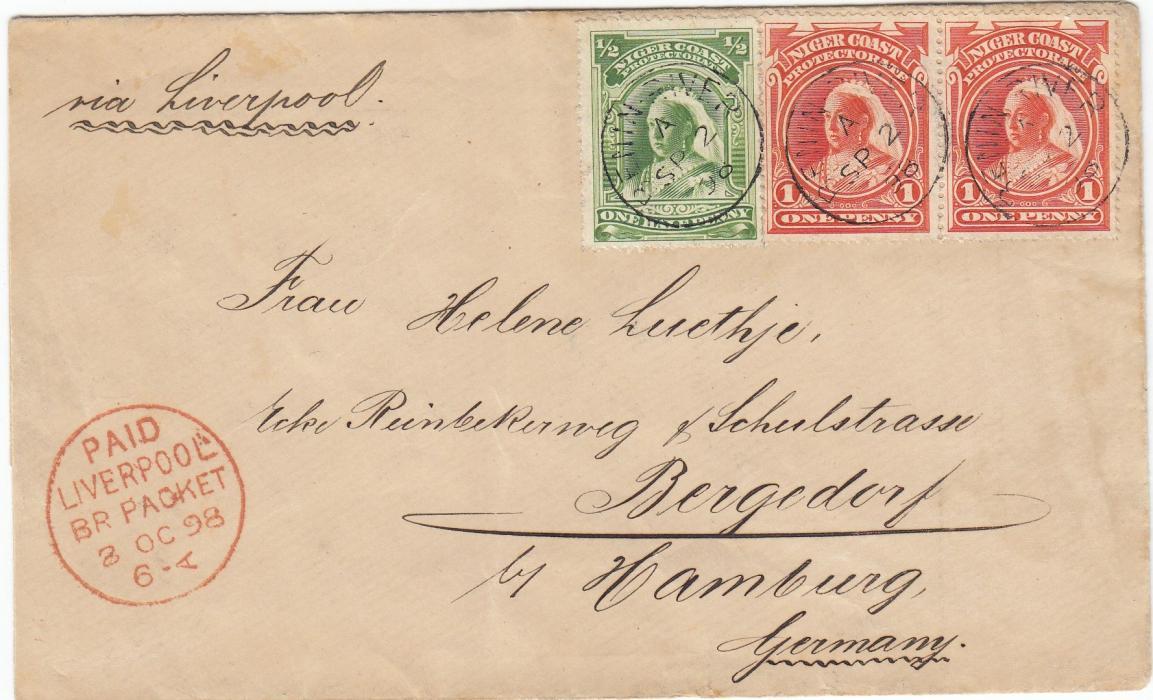 via Liverpool.
1/2 1/2
NIGER COAST
PROTECTORATE
ONE HALFPENNY
NIGER COAST
PROTECTORATE
1 1
ONE PENNY
NIGER COAST
PROTECTORATE
1 1
ONE PENNY
BENIN RIVER
A
SP 2
98
BENIN RIVER
A
SP 2
98
BENIN RIVER
A
2
98
Frau Helene Luethje,
Ecke Reinbekerweg & Schulstrasse
Bergedorf
by Hamburg,
Germany.
PAID
LIVERPOOL
BR PACKET
3 OC 98
6-A